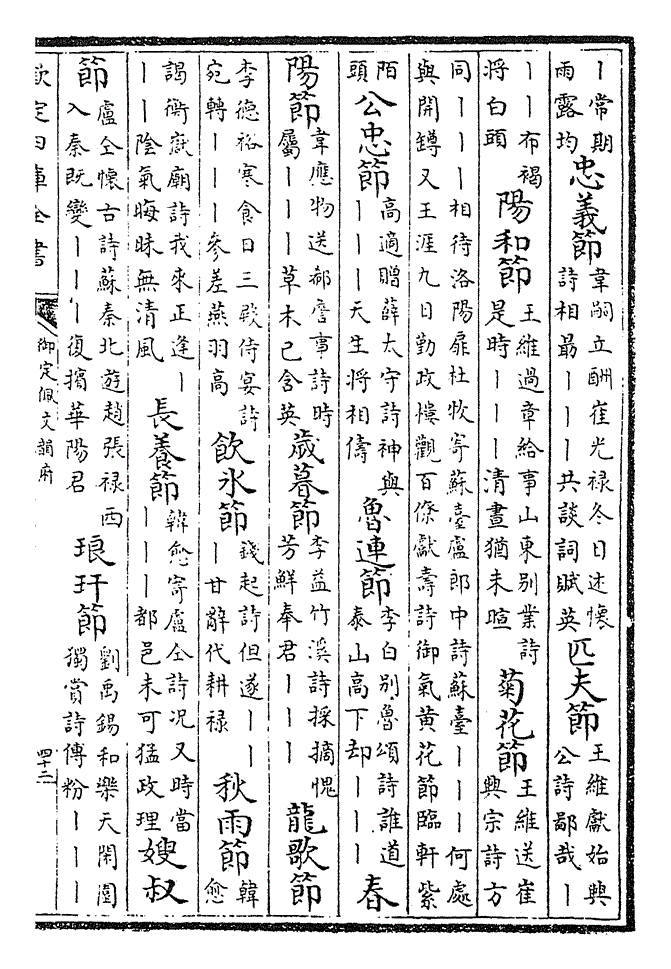 丨常期雨露均忠義節韋嗣立酬崔光禄冬日述懷詩相最丨丨丨共談詞賦英匹夫節王維獻始興公詩鄙哉丨
丨丨布褐將白頭陽和節王維過韋給事山東别業詩是時丨丨丨清晝猶未暄菊花節王維送崔興宗詩方
同丨丨丨相待洛陽扉杜牧寄蘇臺盧郎中詩蘇臺丨丨丨何處與開鐏又王涯九日勤政樓觀百僚獻壽詩御氣黄花節臨軒紫
陌頭公忠節高適贈薛太守詩神與丨丨丨天生將相儔魯連節李白别魯頌詩誰道泰山高下却丨丨丨春
陽節韋應物送郗詹事詩時屬丨丨丨草木已含英歲暮節李益竹溪詩採摘愧芳鮮奉君丨丨丨龍歌節
李德裕寒食日三殿侍宴詩宛轉丨丨丨參差燕羽高飲氷節錢起詩但遂丨丨丨甘辭代耕禄秋雨節韓愈
謁衡嶽廟詩我來正逢丨丨丨陰氣晦昧無清風長養節韓愈寄盧仝詩况又時當丨丨丨都邑未可猛政理嫂叔
節盧仝懷古詩蘇秦北遊趙張禄西入秦既變丨丨丨復擯華陽君琅玕節劉禹錫和樂天閑園獨賞詩傳粉丨丨丨
欽定四庫全書
御定佩文韻府
四十三